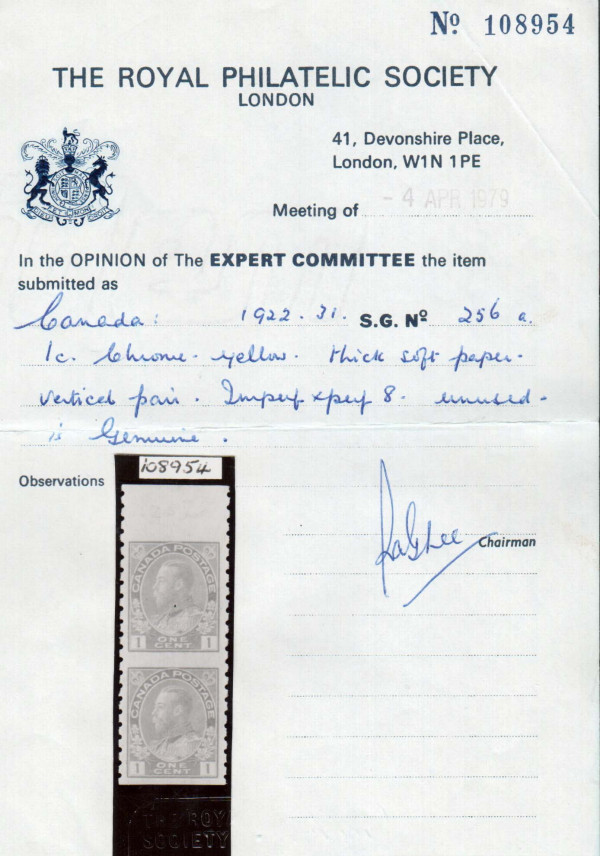 Nº 108954
THE ROYAL PHILATELIC SOCIETY
LONDON
41, Devonshire Place,
London, W1N 1PE
Meeting of - 4 APR 1979
In the OPINION of The EXPERT COMMITTEE the item
submitted as
Canada: 1922.31. S.G. Nº 256 a.
1c. Chrome-yellow. thick soft paper.
vertical pair. Imperf x perf 8. unused.
is Genuine.
Observations
108954
Chairman
CANADA POSTAGE
1 ONE CENT 1
CANADA POSTAGE
1 ONE CENT 1
THE ROY
SOCIETY